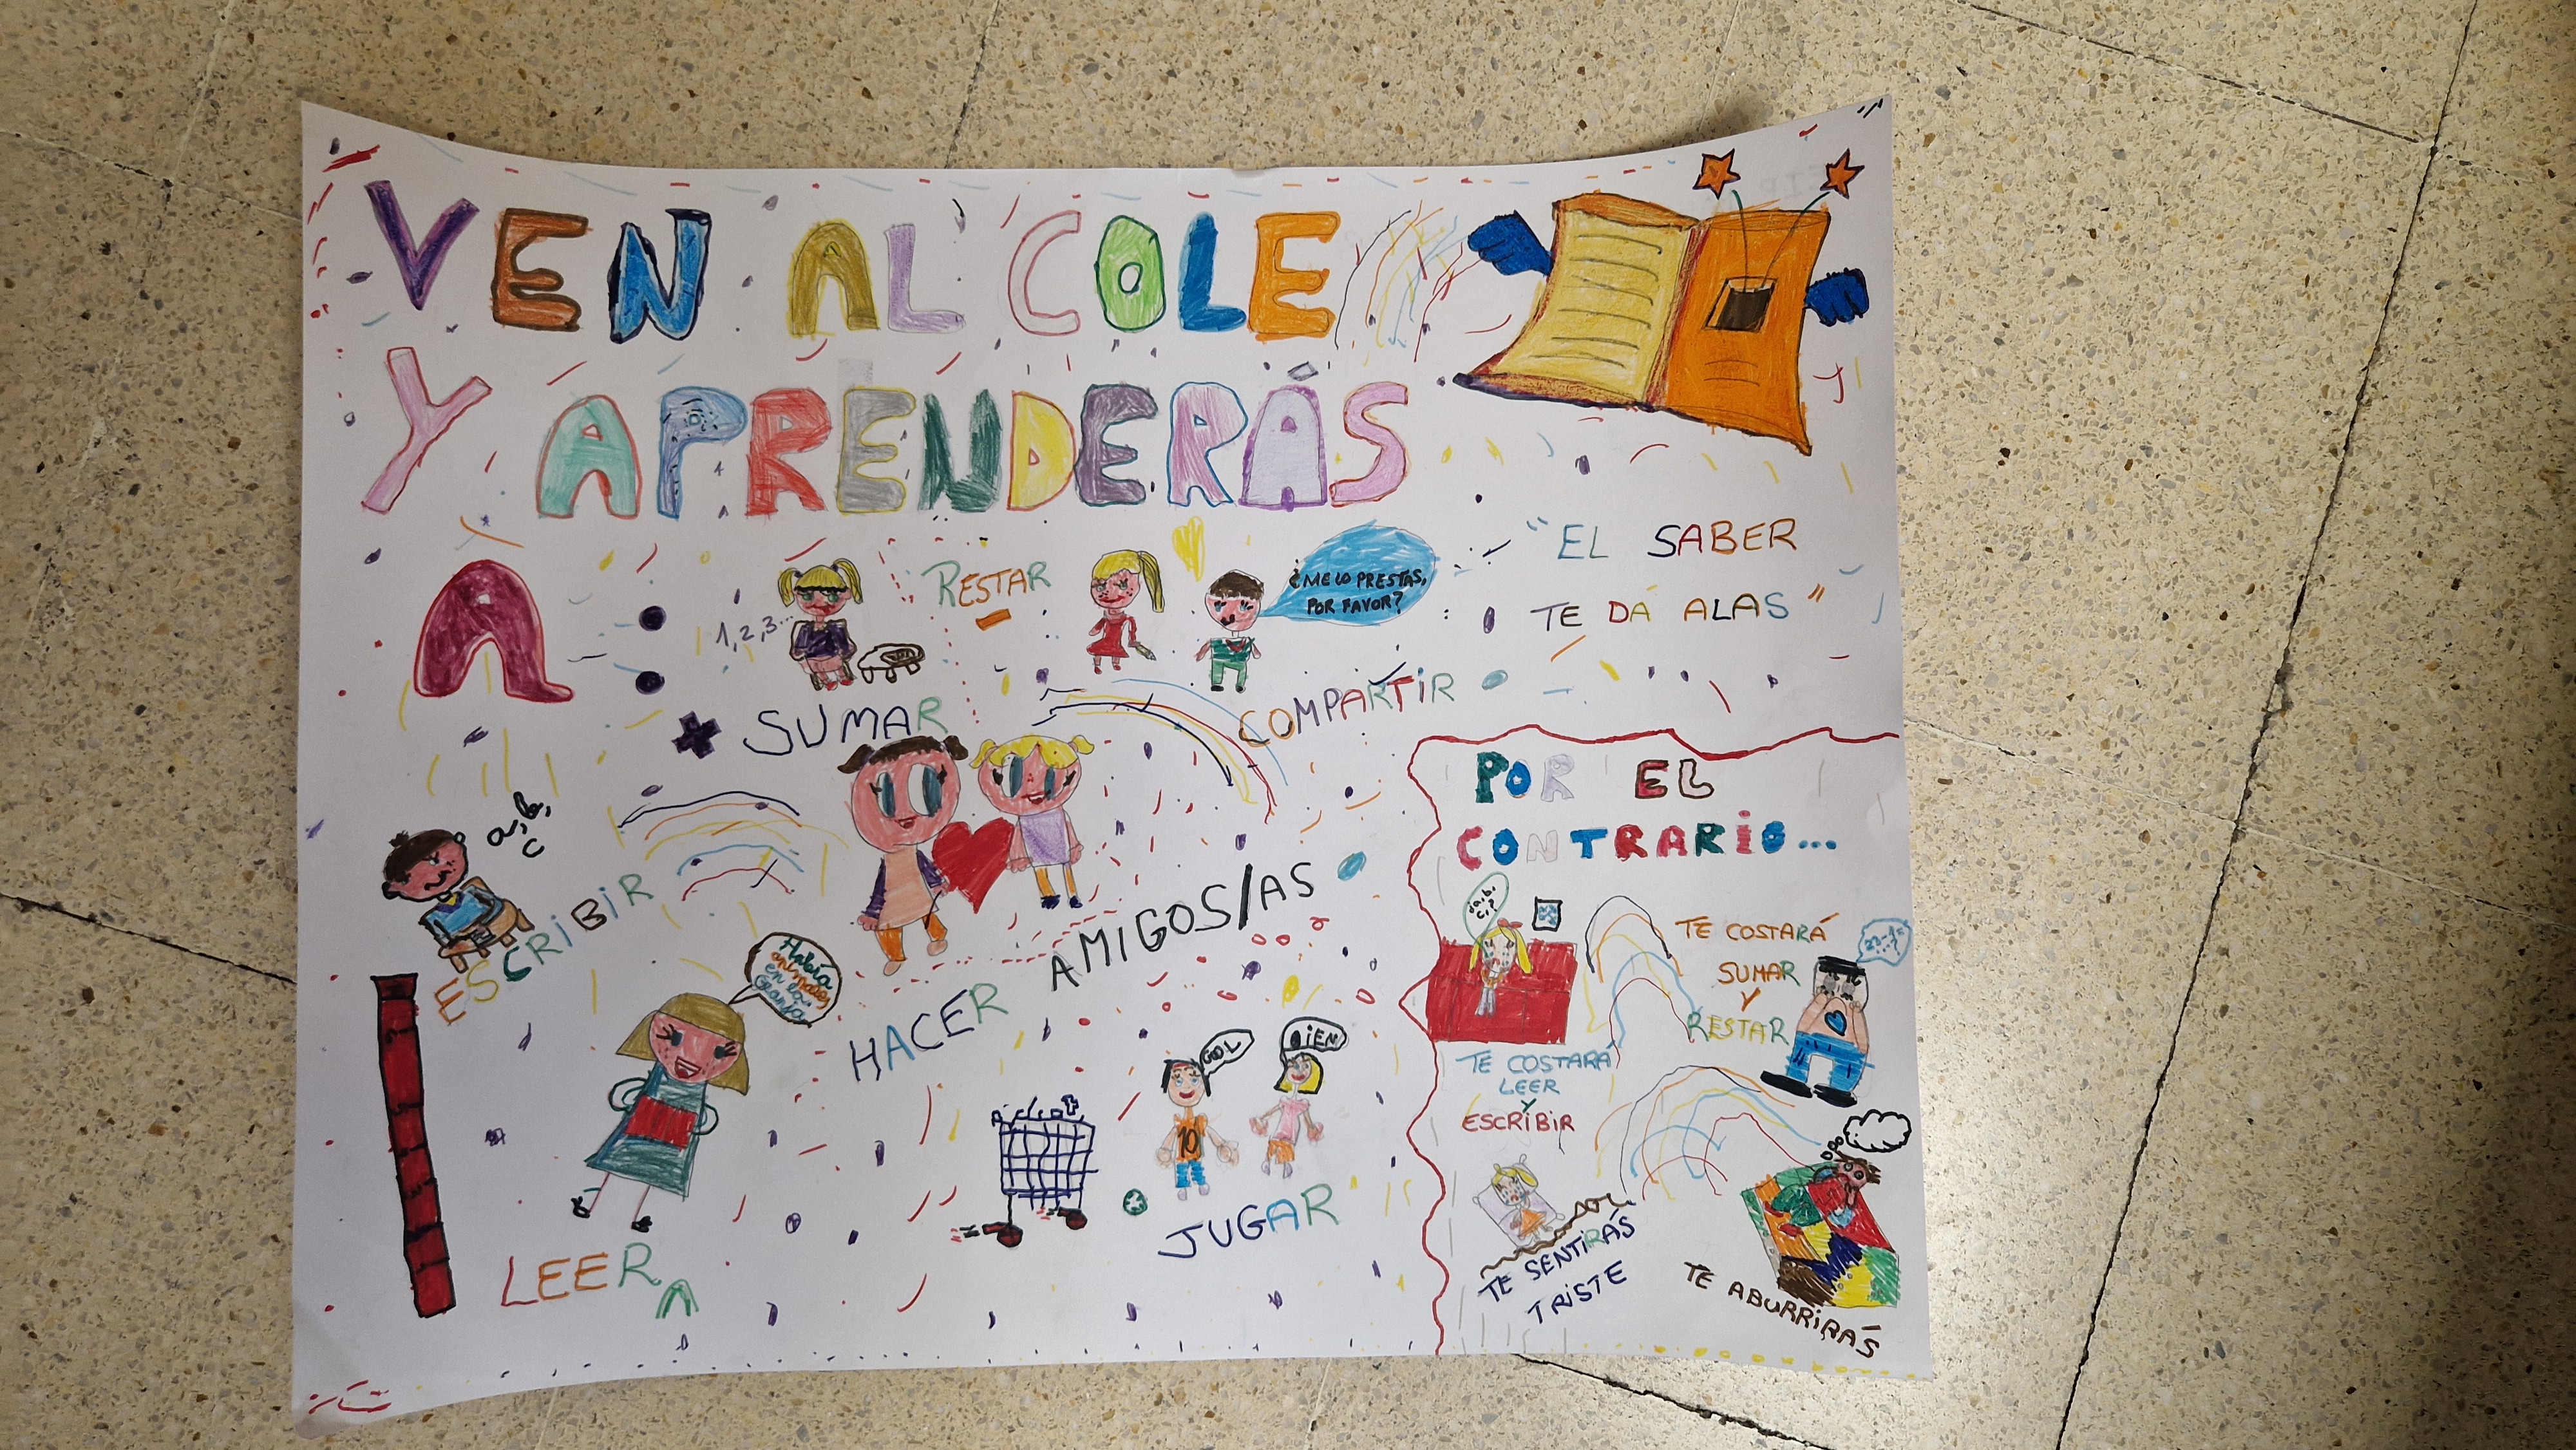 VEN AL COLE
Y APRENDERÁS
A:
1, 2, 3...
SUMAR
RESTAR
¿ME LO PRESTAS,
POR FAVOR?
COMPARTIR
"EL SABER
TE DÁ ALAS"
a, b,
c
ESCRIBIR
HACER AMIGOS/AS
Había
animales
en la
granja
LEER
GOL
BIEN
10
JUGAR
POR EL
CONTRARIO...
TE COSTARÁ
LEER
Y
ESCRIBIR
TE COSTARÁ
SUMAR
Y
RESTAR
TE SENTIRÁS
TRISTE
TE ABURRIRÁS